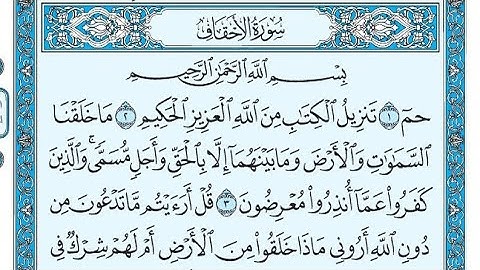 سُورَةُ الأَحْقَافِ
بِسْمِ ٱللَّهِ ٱلرَّحْمَٰنِ ٱلرَّحِيمِ
حمٓ ١ تَنزِيلُ ٱلْكِتَٰبِ مِنَ ٱللَّهِ ٱلْعَزِيزِ ٱلْحَكِيمِ ٢ مَا خَلَقْنَا
ٱلسَّمَٰوَٰتِ وَٱلْأَرْضَ وَمَا بَيْنَهُمَآ إِلَّا بِٱلْحَقِّ وَأَجَلٍ مُّسَمًّى ۚ وَٱلَّذِينَ
كَفَرُوا۟ عَمَّآ أُنذِرُوا۟ مُعْرِضُونَ ٣ قُلْ أَرَءَيْتُم مَّا تَدْعُونَ مِن
دُونِ ٱللَّهِ أَرُونِى مَاذَا خَلَقُوا۟ مِنَ ٱلْأَرْضِ أَمْ لَهُمْ شِرْكٌ فِى